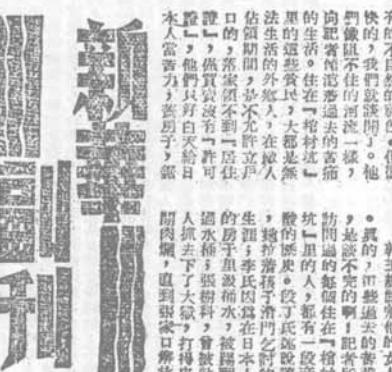 快的,我們就談開了。他
們像阻不住的河流一樣,
向記者傾瀉着過去的苦痛
的生活。住在『棺材坑』
里的這些貧民,大都是無
法生活的外鄉人,在敵人
佔領期間,是不允許立戶
口的,落家領不到『居住
證』,做買賣沒有『許可
證』,他們只好白天給日
本人當苦力,蓋房子,鋸
。真的,這些過去的苦難
,是談不完的啊!記者所
訪問過的每個住在『棺材
坑』里的人,都有一段辛
酸的歷史。段丁氏述說着
,她拉着孩子沿門乞討的
生涯;李氏因爲在日本人
的房子里汲桶水,被踢翻
過水桶;張樹科,曾被敵
人抓去下了大獄,打得皮
開肉爛,直到張家口解放
新華
副刊